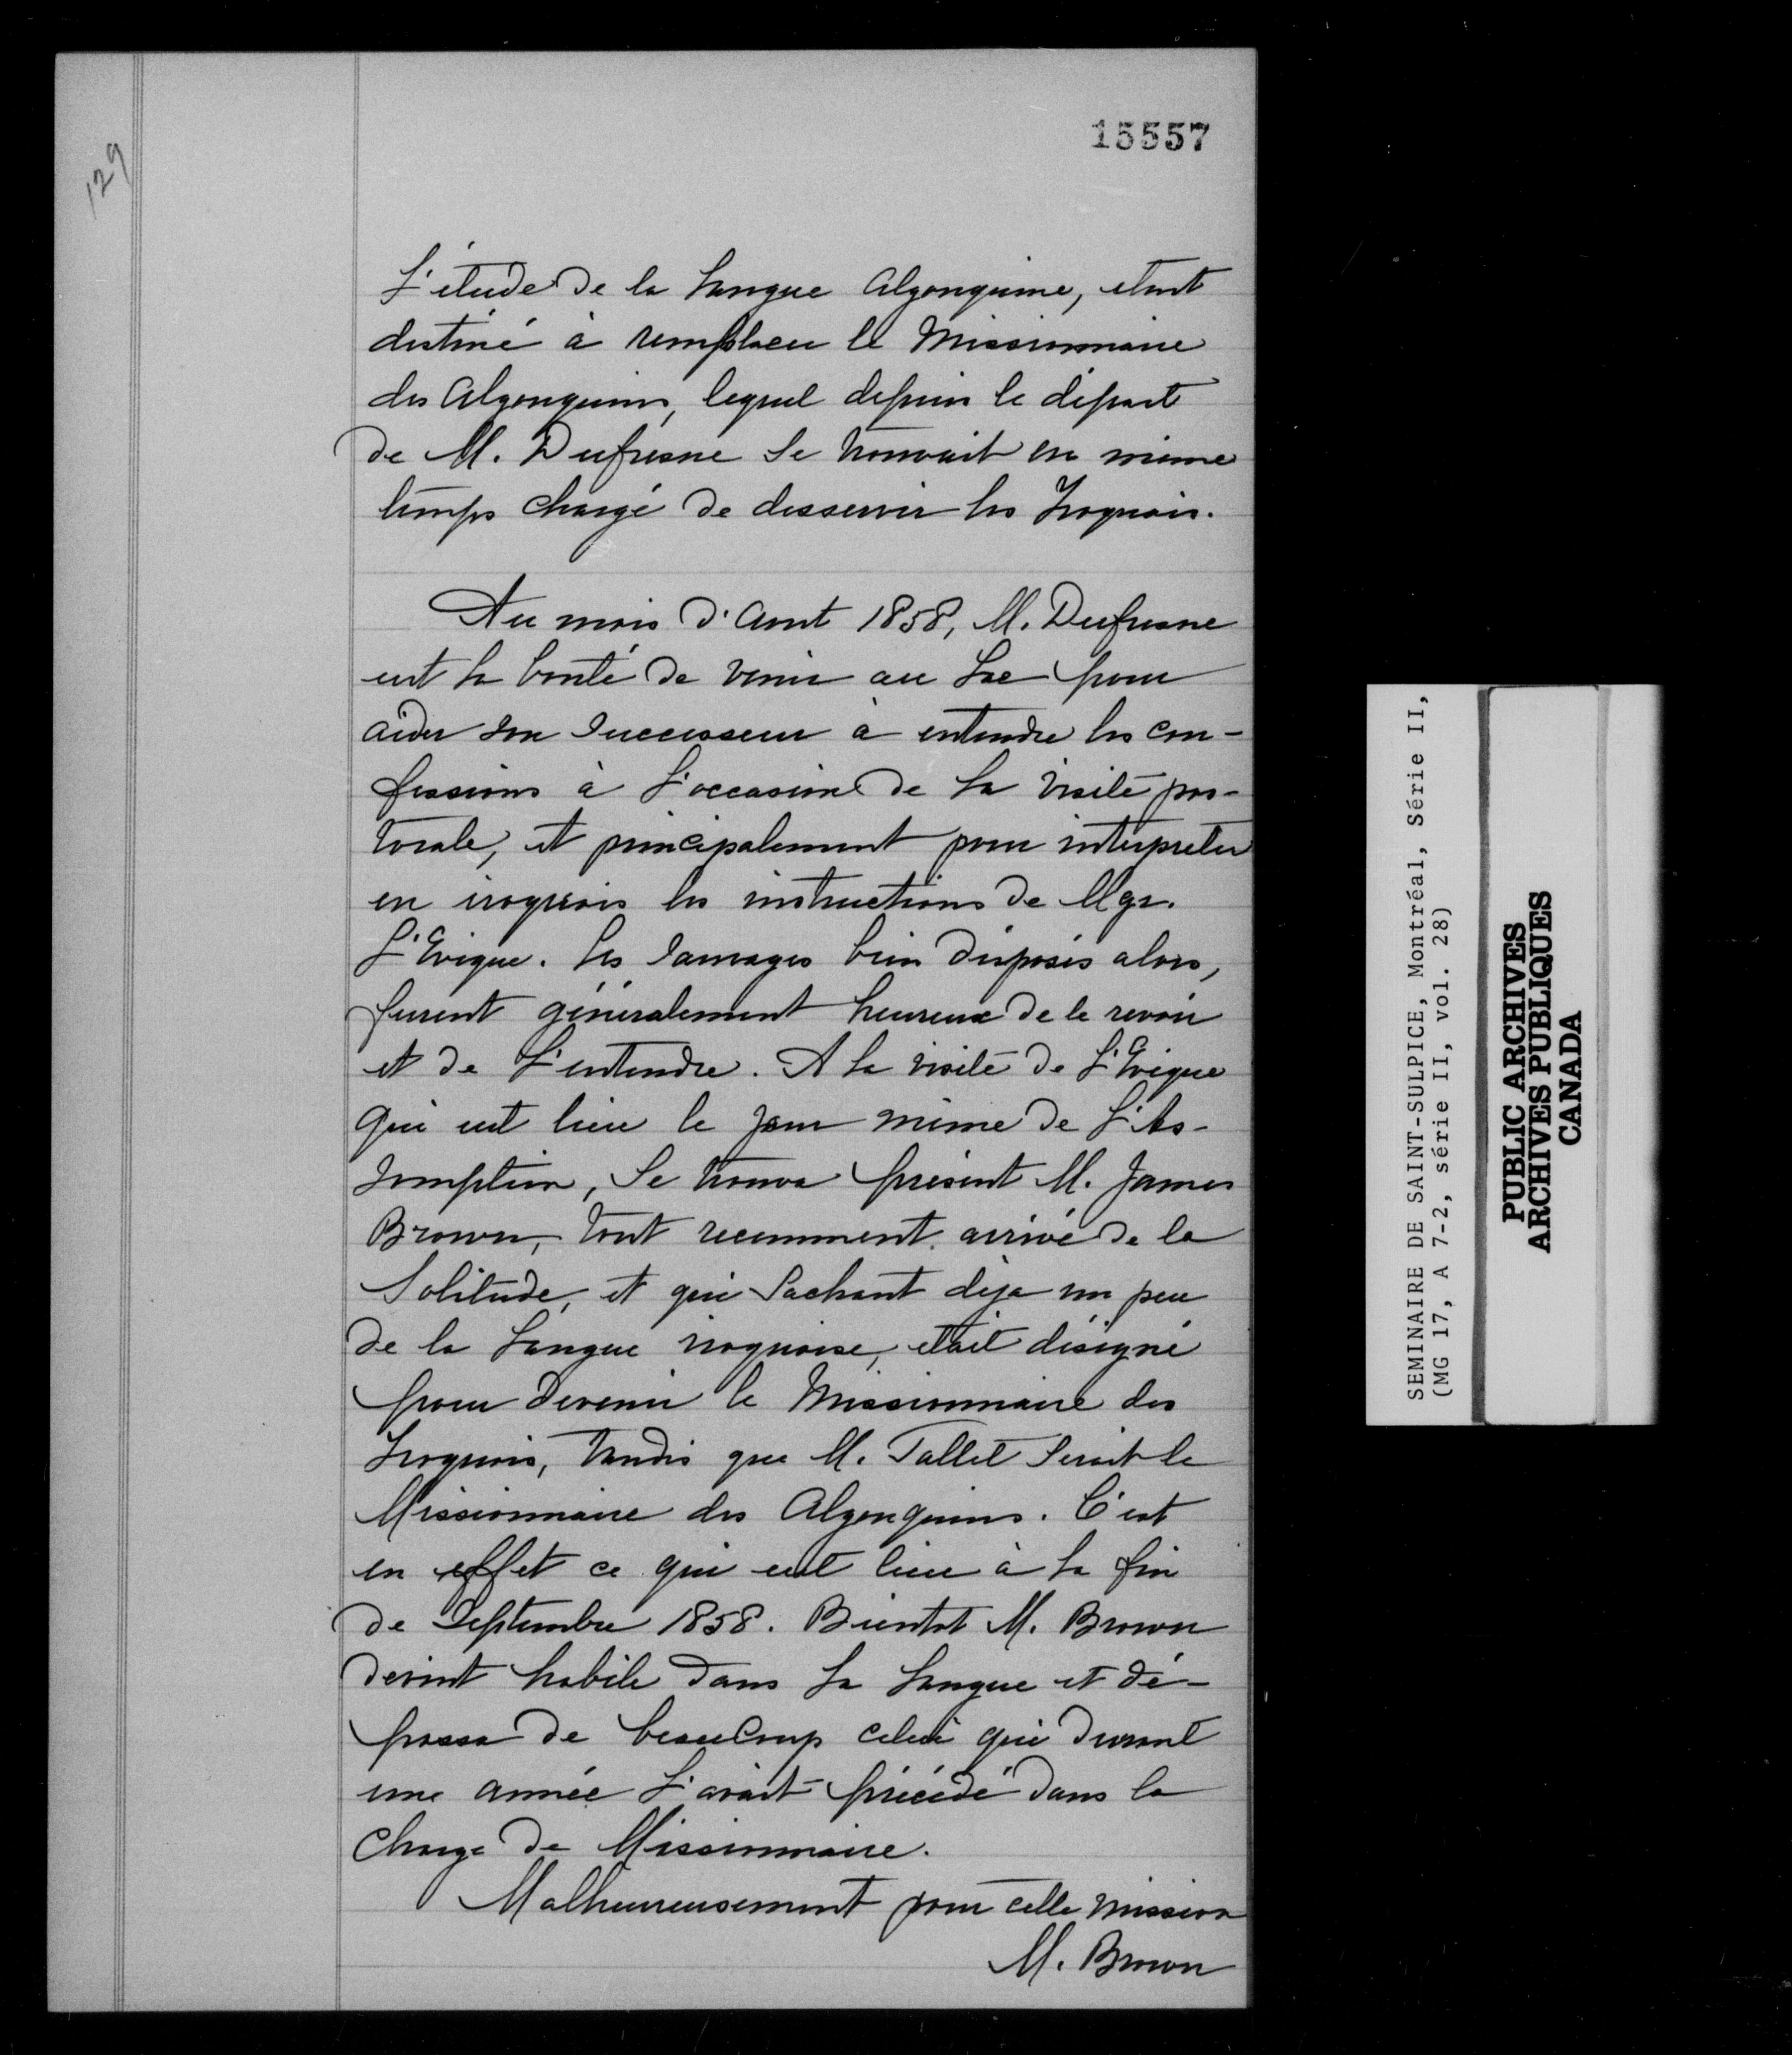 15557
129
l'étude de la langue Algonquine, étant
destiné à remplacer le Missionnaire
des Algonquins, lequel depuis le départ
de M. Dufresne se trouvait en même
temps chargé de desservir les Iroquois.
Au mois d'Aout 1858, M. Dufresne
eut la bonté de venir au Lac pour
aider son successeur à entendre les con-
fessions à l'occasion de la visite pas-
torale, et principalement pour interpreter
en iroquois les instructions de Mgr.
l'Evêque. Les Sauvages bien disposés alors,
furent généralement heureux de le revoir
et de l'entendre. A la visite de l'Evêque
qui eut lieu le jour même de l'As-
somption, se trouva présent M. James
Brown, tout recemment arrivé de la
Solitude, et qui sachant déja un peu
de la langue iroquoise, était désigné
pour devenir le Missionnaire des
Iroquois, tandis que M. Tallet serait le
Missionnaire des Algonquins. C'est
en effet ce qui eut lieu à la fin
de Septembre 1858. Bientot M. Brown
devint habile dans la langue et dé-
passa de beaucoup celui qui durant
une année l'avait précédé dans la
charge de Missionnaire.
Malheureusement pour cette mission
M. Brown
SEMINAIRE DE SAINT-SULPICE, Montréal, Série II,
(MG 17, A 7-2, série II, vol. 28)
PUBLIC ARCHIVES
ARCHIVES PUBLIQUES
CANADA